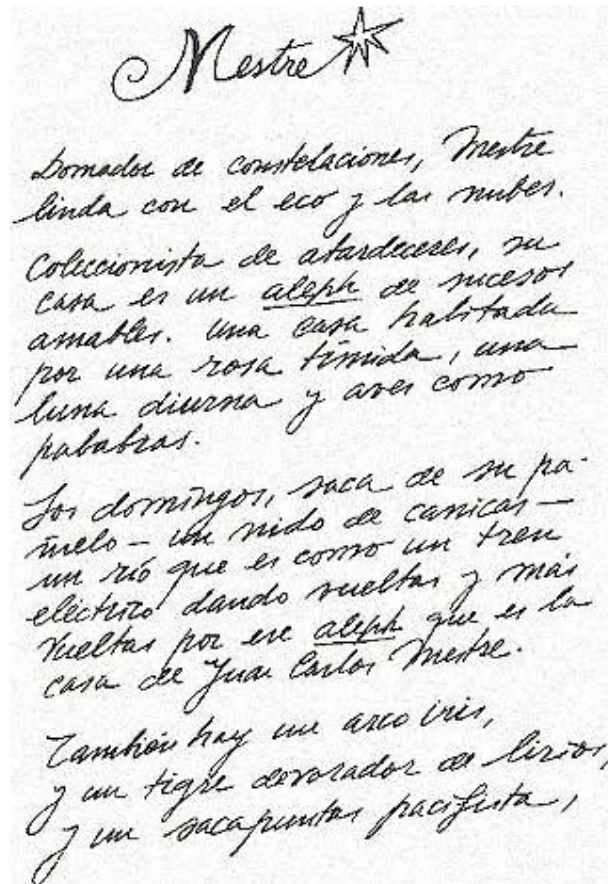 Mestre
Domador de constelaciones, Mestre
linda con el eco y las nubes.
Coleccionista de atardeceres, su
casa es un aleph de sucesos
amables. Una casa habitada
por una rosa tímida, una
luna diurna y aves como
palabras.
Los domingos, saca de su pa-
ñuelo – un nido de canicas –
un río que es como un tren
eléctrico dando vueltas y más
vueltas por ese aleph que es la
casa de Juan Carlos Mestre.
También hay un arco iris,
y un tigre devorador de lirios,
y un sacapuntas pacifista,